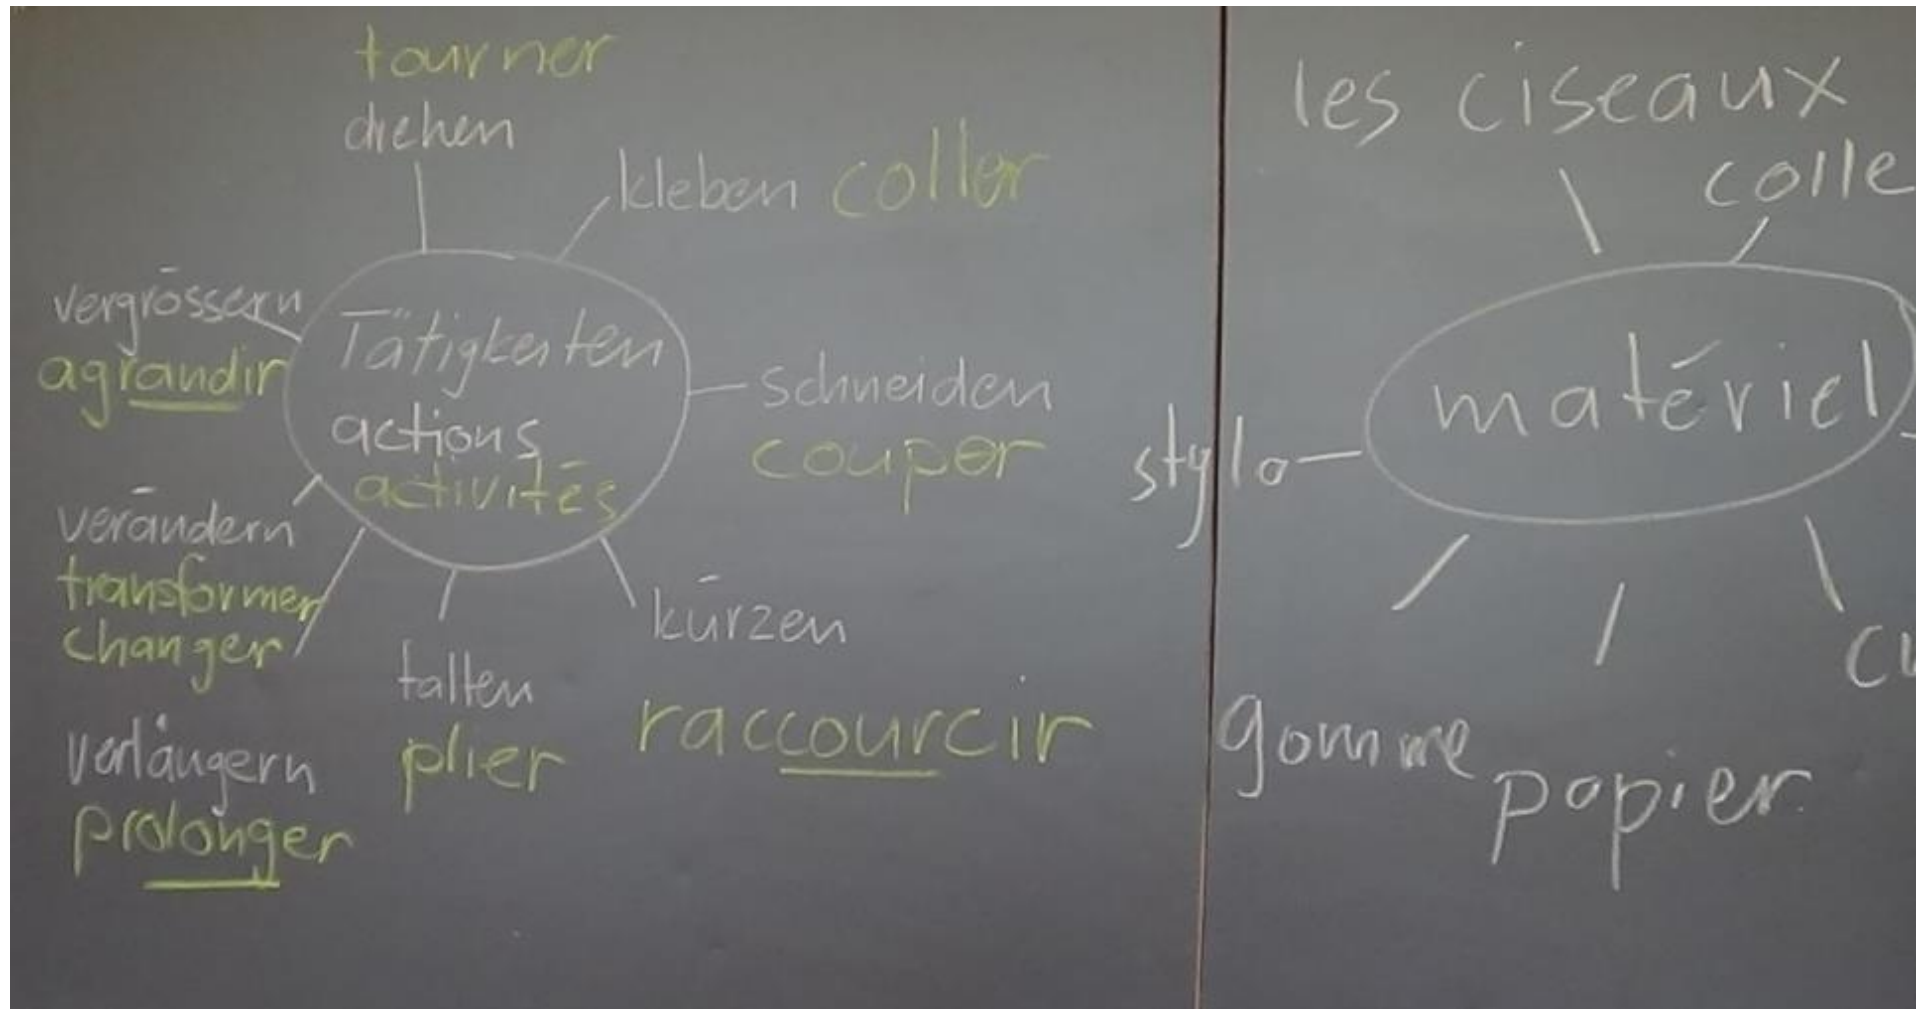 tourner
drehen
kleben coller
vergrössern
agrandir
Tätigkeiten
actions
activités
schneiden
couper
verändern
transformer
changer
kürzen
raccourcir
falten
plier
verlängern
prolonger
les ciseaux
colle
matériel
stylo
gomme
papier